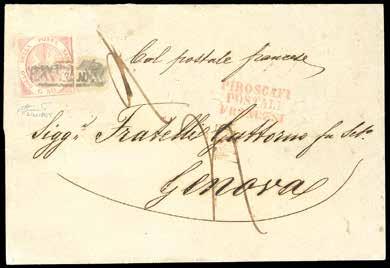 Col postale francese
PIROSCAFI
POSTALI
FRANCESI
Sigg.i Fratelli Gattorno fu Seb.
Genova